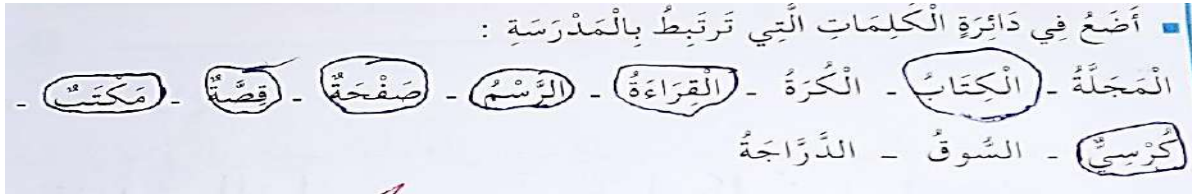 أَضَعُ فِي دَائِرَةٍ الْكَلِمَاتِ الَّتِي تَرتَبِطُ بِالْمَدْرَسَةِ :
الْمَجَلَّةُ - الْكِتَابُ - الْكُرَةُ - الْقِرَاءَةُ - الرَّسْمُ - صَفْحَةٌ - قِصَّةٌ - مَكْتَبٌ -
كُرْسِيٌّ - السُّوقُ - الدَّرَّاجَةُ